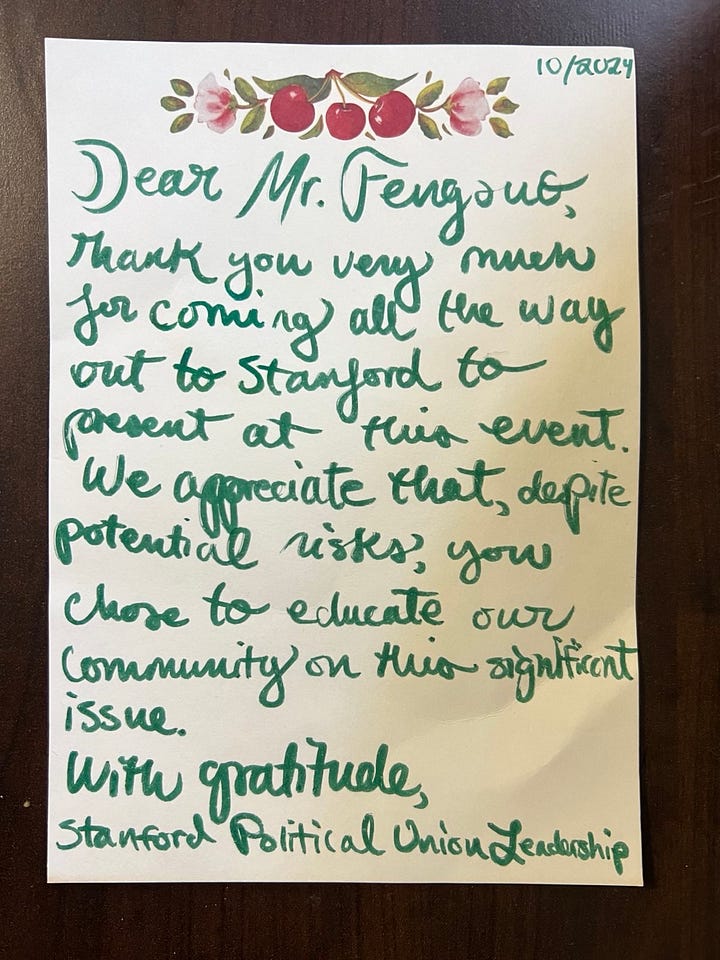 10/2024
Dear Mr. Fengsuo,
thank you very much
for coming all the way
out to Stanford to
present at this event.
We appreciate that, despite
potential risks, you
chose to educate our
community on this significant
issue.
With gratitude,
Stanford Political Union Leadership